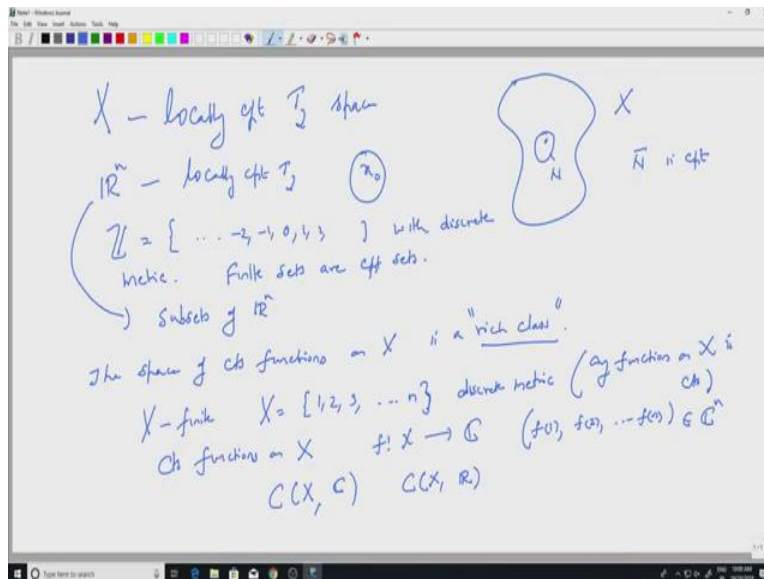 Note1 - Windows Journal
File Edit View Insert Actions Tools Help
X - locally cpt T₂ space
X
N
N̄ is cpt
ℝⁿ - locally cpt T₂
x₀
ℤ = { ... -2, -1, 0, 1, 3 } with discrete
metric. Finite sets are cpt sets.
Subsets of ℝⁿ
The space of cts functions on X is a "rich class".
X - finite X = {1, 2, 3, ... n} discrete metric (any function on X is
cts)
Cts functions on X f: X → ℂ (f(1), f(2), ... f(n)) ∈ ℂⁿ
C(X, ℂ) C(X, ℝ)
Type here to search